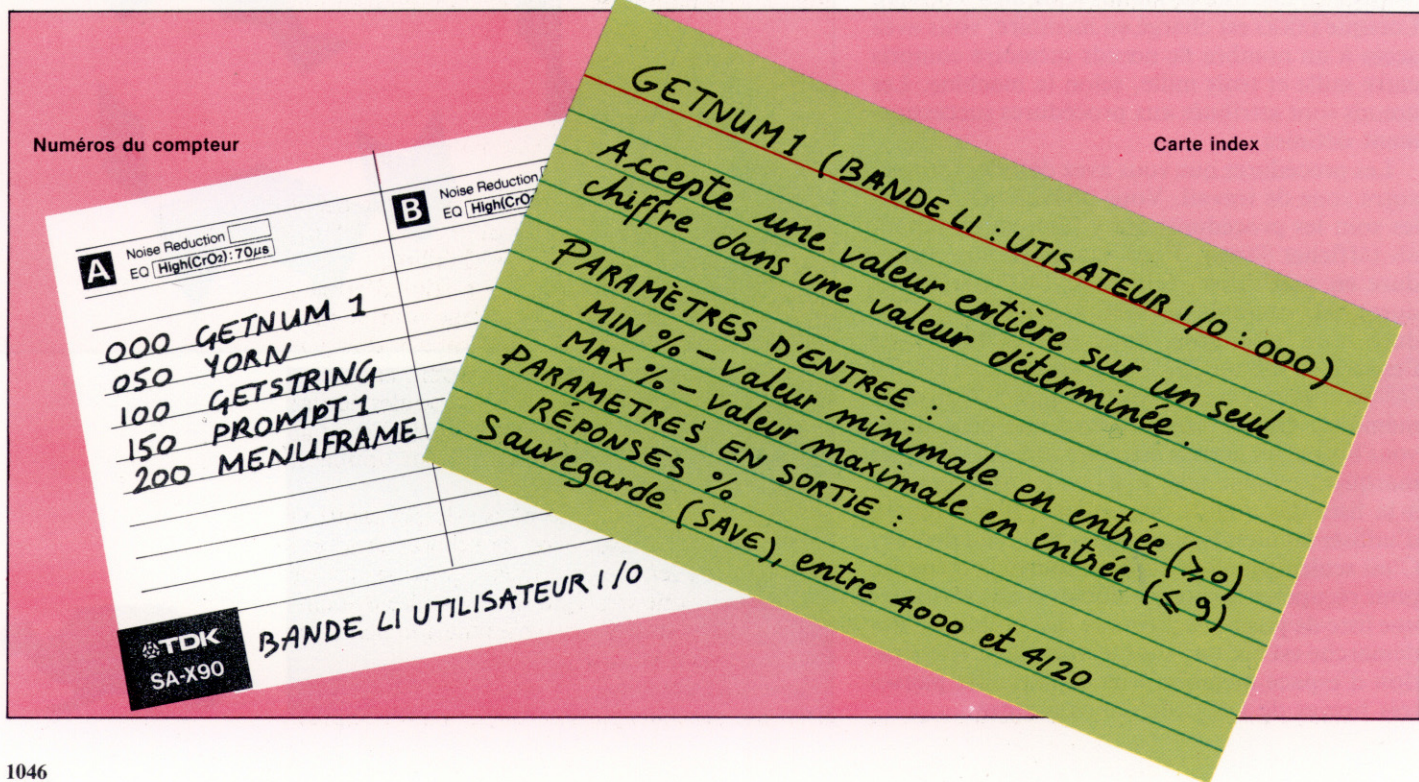 Numéros du compteur
A Noise Reduction
EQ High(CrO₂): 70µs
B Noise Reduction
EQ High(CrO
000 GETNUM 1
050 YORN
100 GETSTRING
150 PROMPT 1
200 MENUFRAME
TDK
SA-X90
BANDE LI UTILISATEUR I/O
Carte index
GETNUM1 (BANDE LI : UTISATEUR I/O : 000)
Accepte une valeur entière sur un seul
chiffre dans une valeur déterminée.
PARAMÈTRES D'ENTREE :
MIN % – valeur minimale en entrée (≥0)
MAX % – valeur maximale en entrée (≤ 9)
PARAMETRES EN SORTIE :
RÉPONSES %
Sauvegarde (SAVE), entre 4000 et 4120
1046